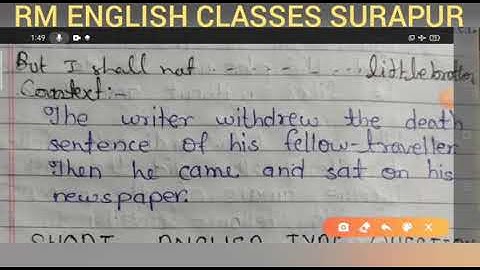 RM ENGLISH CLASSES SURAPUR
1:49
But I shall not - - - - - - - ... little brother
Context:-
The writer withdrew the death
sentence of his fellow-traveller
Then he came and sat on his
newspaper.
SHORT ANSWER TYPE QUESTION